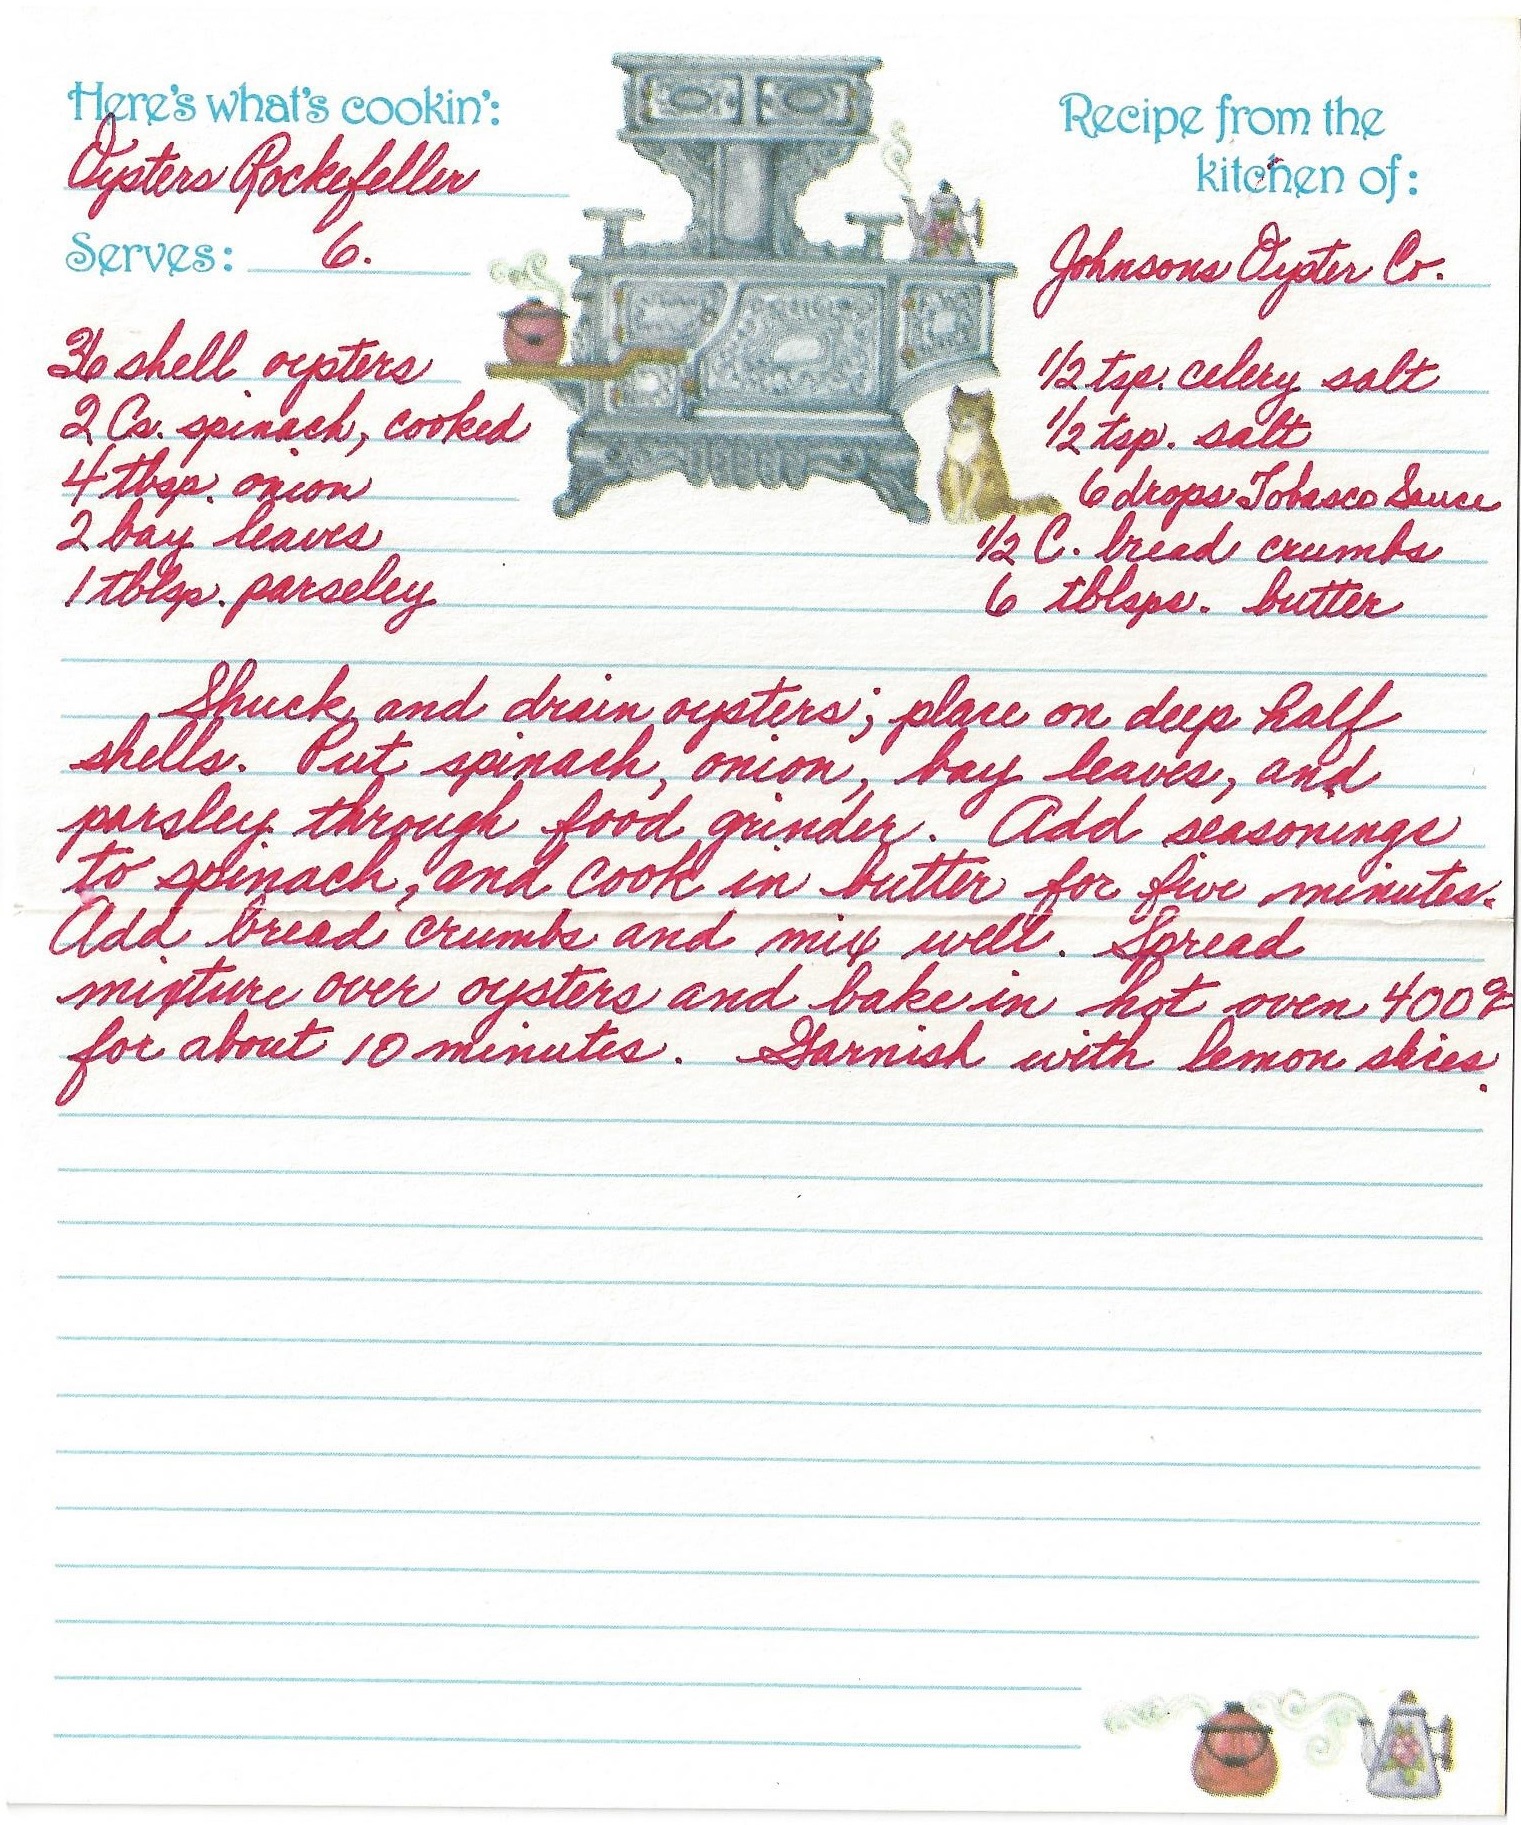 Here's what's cookin':
Oysters Rockefeller
Serves: 6.
Recipe from the
kitchen of:
Johnsons Oyster Co.
36 shell oysters
2 Cs. spinach, cooked
4 tbsp. onion
2 bay leaves
1 tblsp. parseley
1/2 tsp. celery salt
1/2 tsp. salt
6 drops Tobasco Sauce
1/2 C. bread crumbs
6 tblsps. butter
Shuck and drain oysters; place on deep half
shells. Put spinach, onion, bay leaves, and
parsley through food grinder. Add seasonings
to spinach, and cook in butter for five minutes.
Add bread crumbs and mix well. Spread
mixture over oysters and bake in hot oven 400°
for about 10 minutes. Garnish with lemon slices.